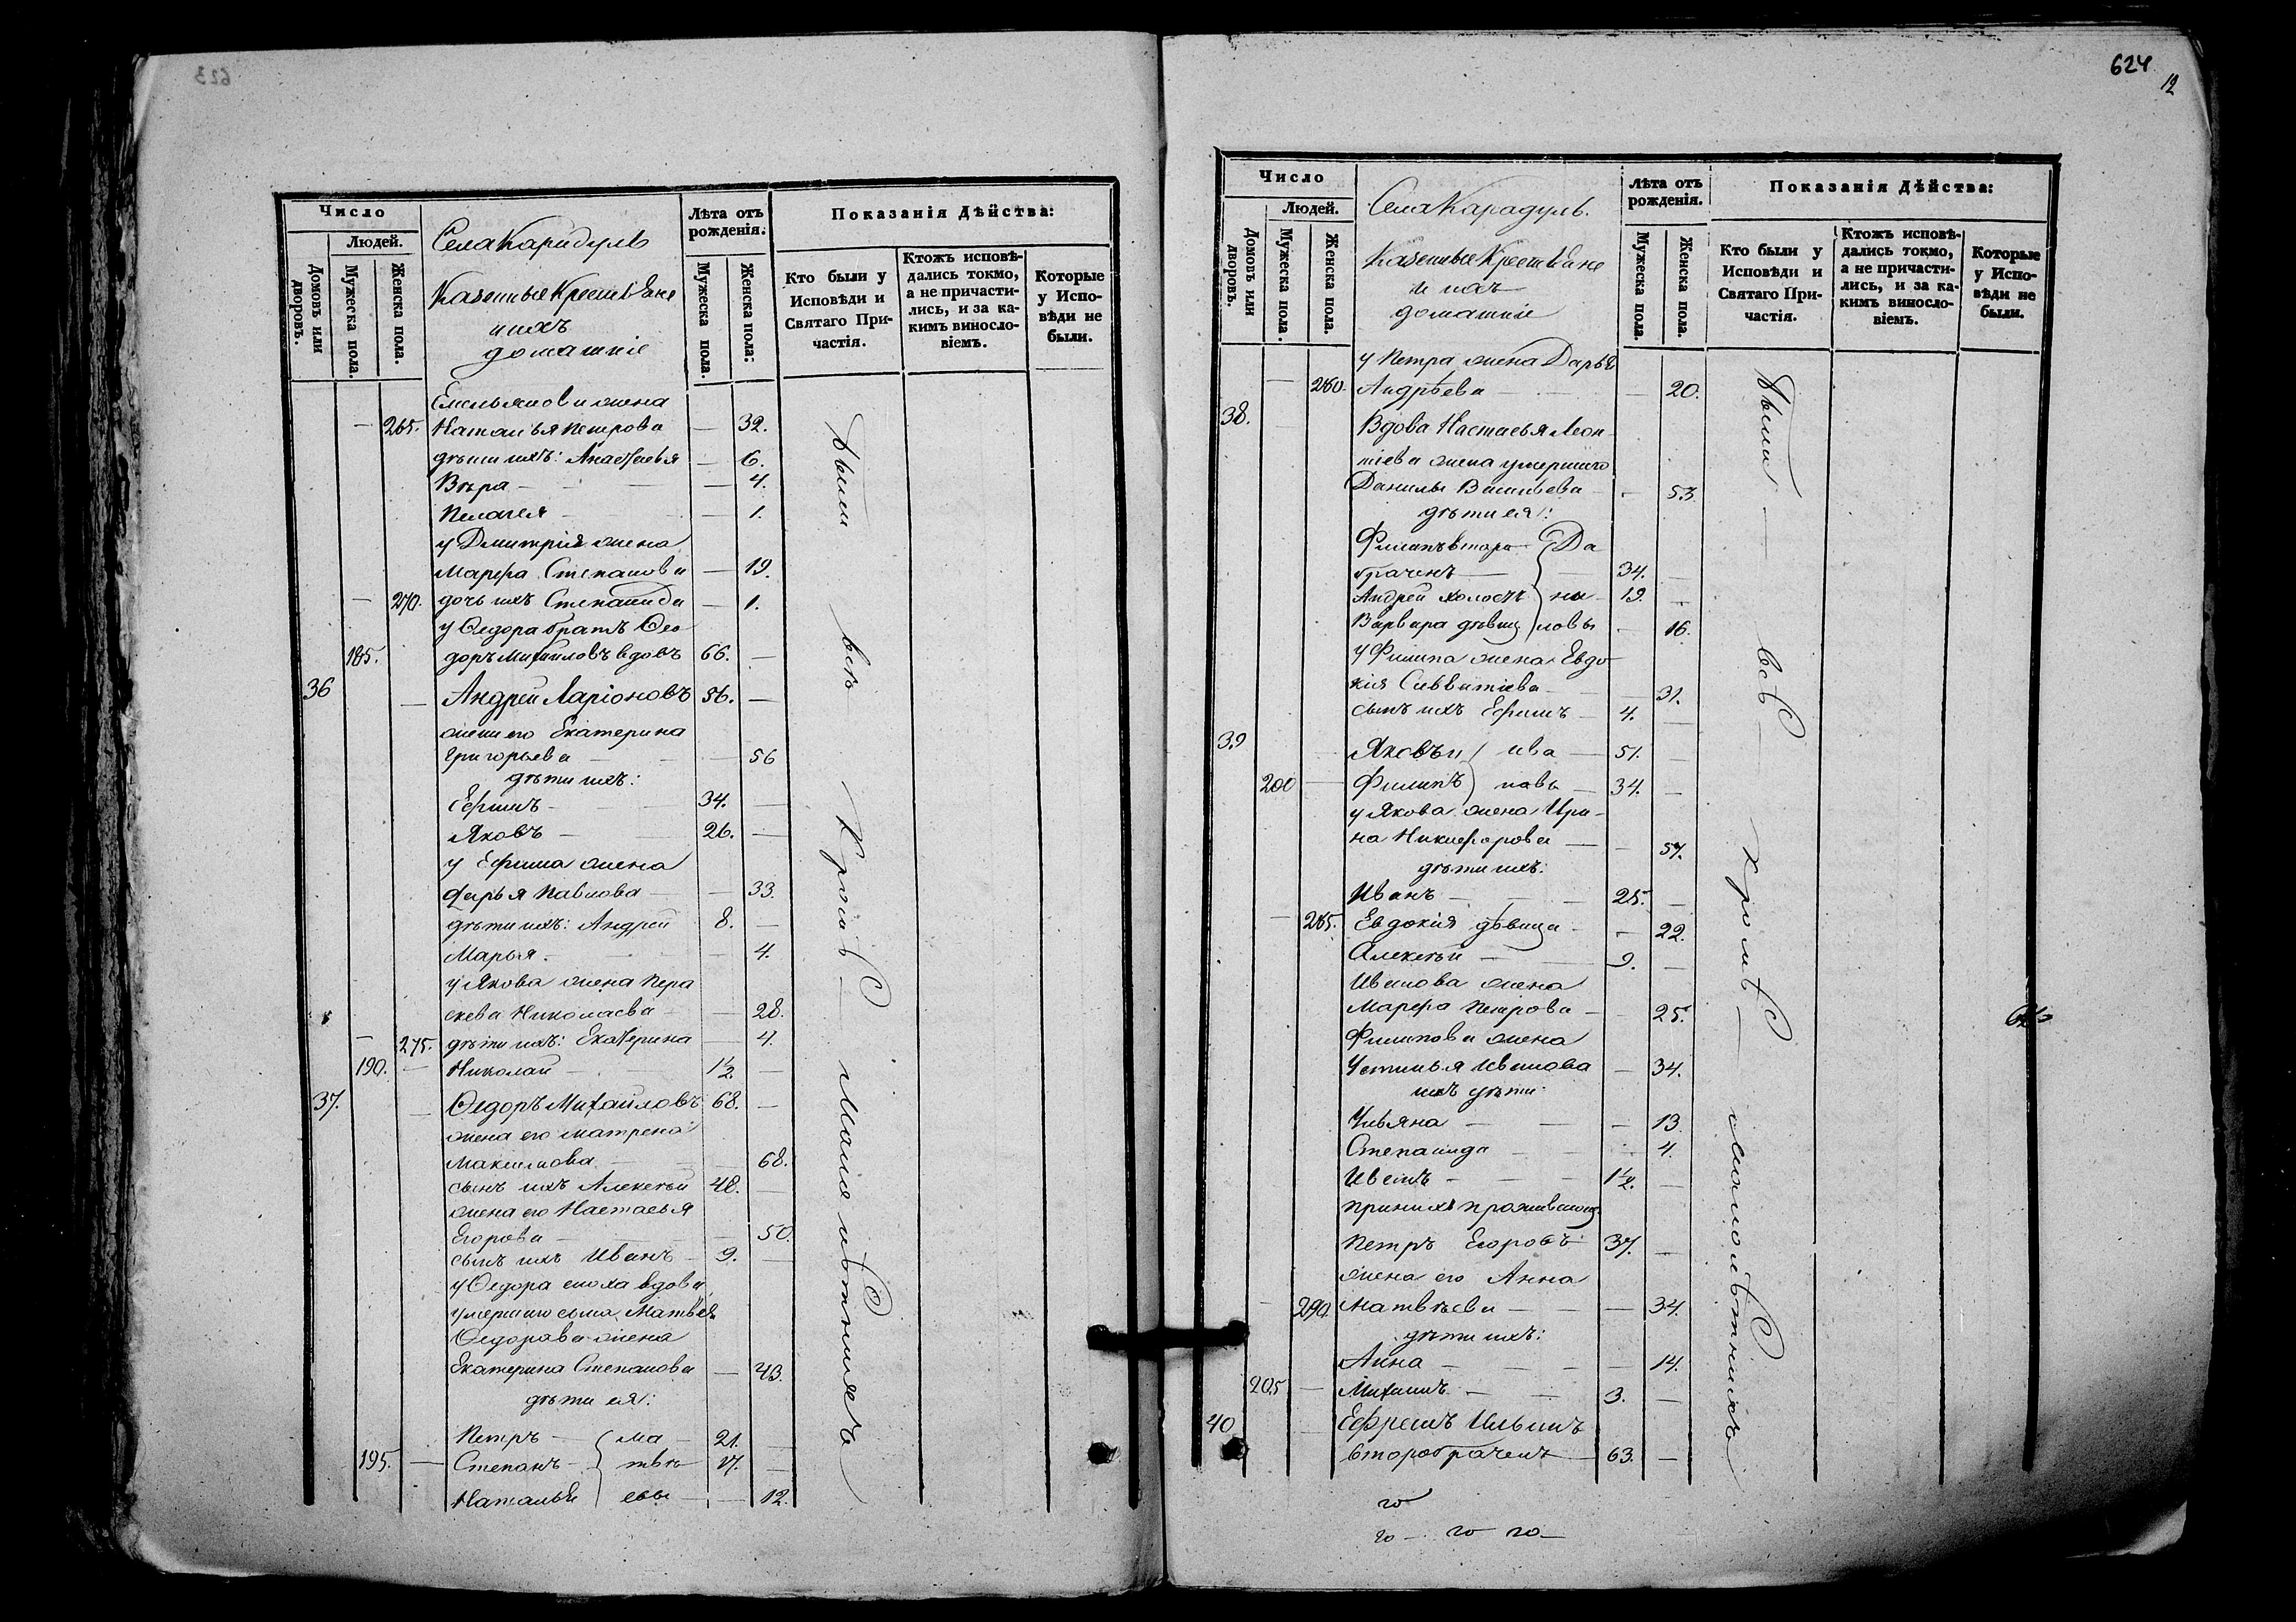 623
Число
Людей.
Домовъ или дворовъ.
Мужеска пола.
Женска пола.
Села Карадуль
Казенные Крестьяне
и ихъ
домашніе
Лѣта отъ рожденія.
Мужеска пола.
Женска пола.
Показанія Дѣйства:
Кто были у Исповѣди и Святаго Причастія.
Ктожъ исповѣдались токмо, а не причастились, и за какимъ винословіемъ.
Которые у Исповѣди не были.
Емельянова жена
265. Наталья Петрова — 32.
дѣти ихъ: Анастасья — 6.
Вѣра — 4.
Пелагея — 1.
у Дмитрія жена
Марфа Степанова — 19.
270. дочь ихъ Степанида — 1.
у Ѳедора братъ Ѳео
185. доръ Михайловъ вдовъ 66. —
36 — Андрей Ларіоновъ 56. —
жена его Екатерина
Григорьева — 56
дѣти ихъ:
Ефимъ — 34. —
Яковъ — 26. —
у Ефима жена
Дарья Павлова — 33.
дѣти ихъ: Андрей 8. —
Марья — 4.
у Якова жена Пара
скева Николаева — 28.
— 275. дѣти ихъ: Екатерина — 4.
190. — Николай — 1/2. —
37. — Ѳедоръ Михайловъ 68. —
жена его Матрена
Максимова — 68.
сынъ ихъ Алексѣй 48. —
жена его Настасья
Егорова — 50.
сынъ ихъ Иванъ 9. —
у Ѳедора сноха вдова
умершаго сына Матвѣя
Ѳедорова жена
Екатерина Степанова — 43.
дѣти ея:
Петръ — Ма 21. —
195. — Степанъ — твѣ 17. —
Наталья евы — 12.
Были всѣ кромѣ малолѣтнихъ
624
12
Число
Людей.
Домовъ или дворовъ.
Мужеска пола.
Женска пола.
Села Карадуль.
Казенные Крестьяне
и ихъ
домашніе
Лѣта отъ рожденія.
Мужеска пола.
Женска пола.
Показанія Дѣйства:
Кто были у Исповѣди и Святаго Причастія.
Ктожъ исповѣдались токмо, а не причастились, и за какимъ винословіемъ.
Которые у Исповѣди не были.
у Петра жена Дарья
— 280. Андрѣева — 20.
38. Вдова Настасья Леон
тіева жена умершаго
Данилы Васильева — 53
дѣти ея:
Филипъ второ Да
браченъ — 34. —
Андрей холостъ ни 19. —
Варвара дѣвица ловы — 16.
у Филипа жена Евдо
кія Савватіева — 31.
сынъ ихъ Ефимъ — 4. —
39 — Яковъ и Ива 51. —
200 — Филипъ новы 34. —
у Якова жена Ири
на Никифорова — 57.
дѣти ихъ:
Иванъ — 25. —
— 285. Евдокія дѣвица — 22.
Алексѣй — 9. —
Иванова жена
Марфа Петрова — 25.
Филипова жена
Устинья Иванова — 34.
ихъ дѣти
Ульяна — 13.
Степанида — 4.
Иванъ — 1/2. —
при нихъ проживающ.
Петръ Егоровъ 37. —
жена его Анна
— 290. Матвѣева — 34.
дѣти ихъ:
Анна — 14.
205 — Михаилъ — 3. —
40 — Ефремъ Ильинъ
второбраченъ — 63. —
Были — всѣ — кромѣ — малолѣтнихъ